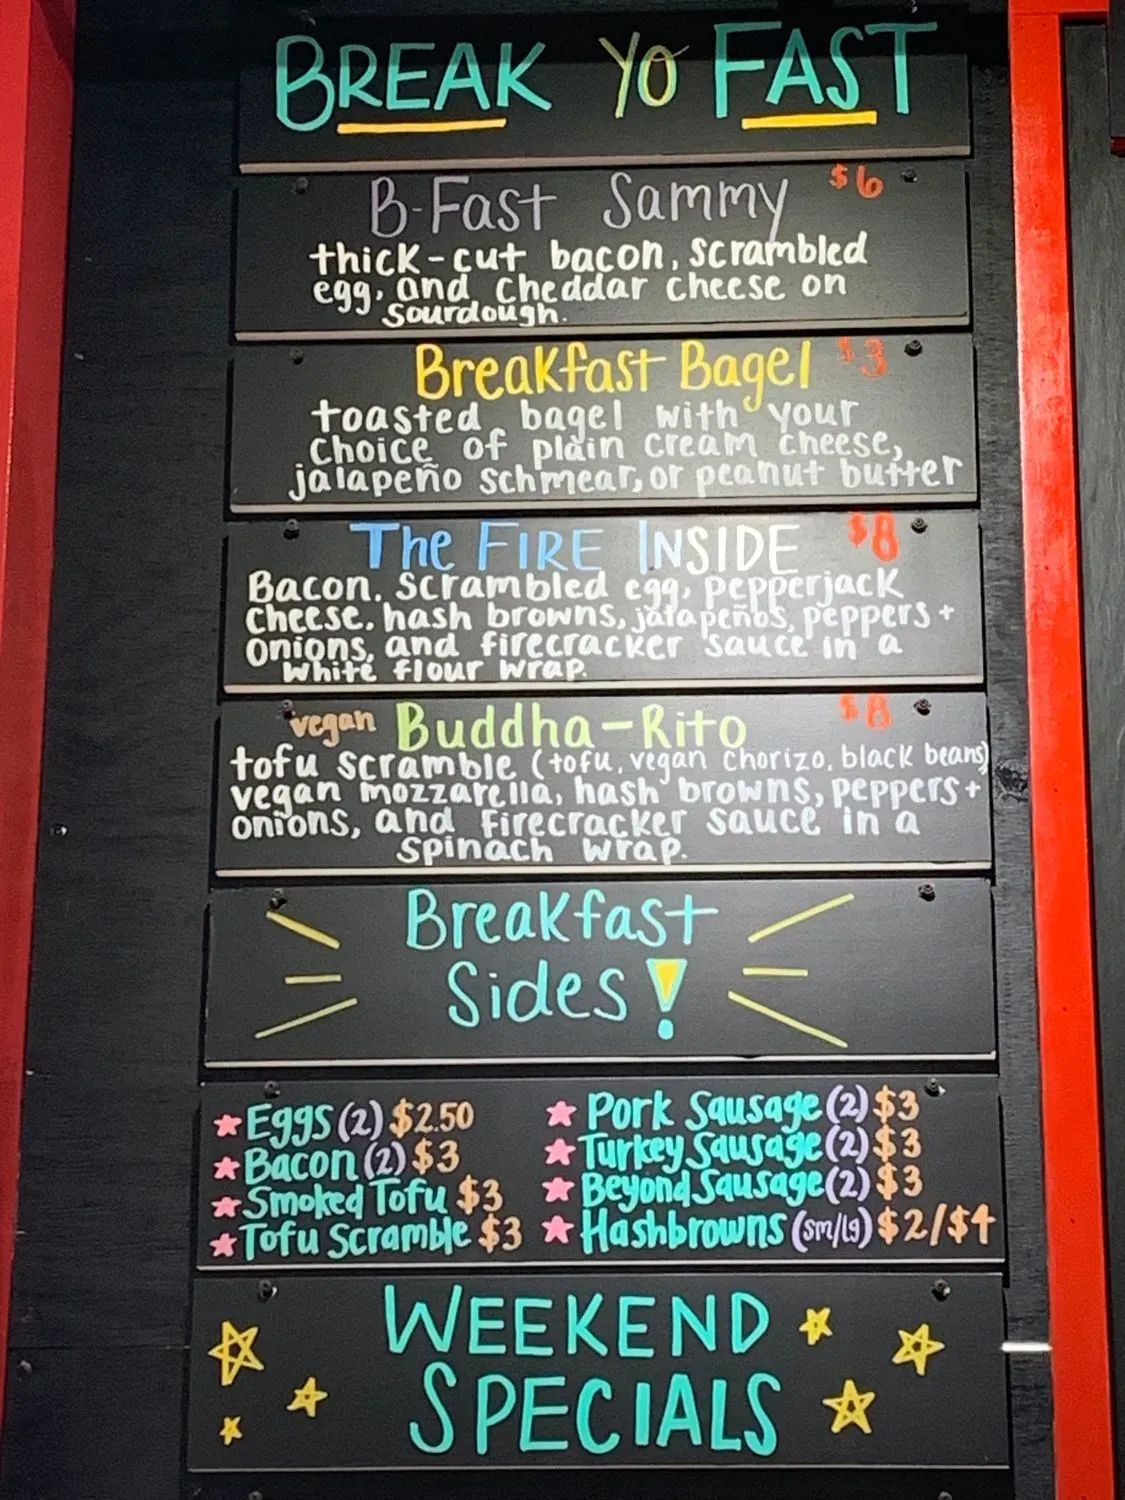 BREAK YO FAST
B-Fast Sammy $6
thick-cut bacon, scrambled
egg, and cheddar cheese on
sourdough.
Breakfast Bagel $3
toasted bagel with your
choice of plain cream cheese,
jalapeño schmear, or peanut butter
The FIRE INSIDE $8
Bacon, scrambled egg, pepperjack
cheese, hash browns, jalapeños, peppers +
onions, and firecracker sauce in a
white flour wrap.
vegan Buddha-Rito $8
tofu scramble (tofu, vegan chorizo, black beans)
vegan mozzarella, hash browns, peppers +
onions, and firecracker sauce in a
spinach wrap.
Breakfast
Sides!
Eggs (2) $2.50
Bacon (2) $3
Smoked Tofu $3
Tofu Scramble $3
Pork Sausage (2) $3
Turkey Sausage (2) $3
Beyond Sausage (2) $3
Hashbrowns (sm/lg) $2/$4
WEEKEND
SPECIALS